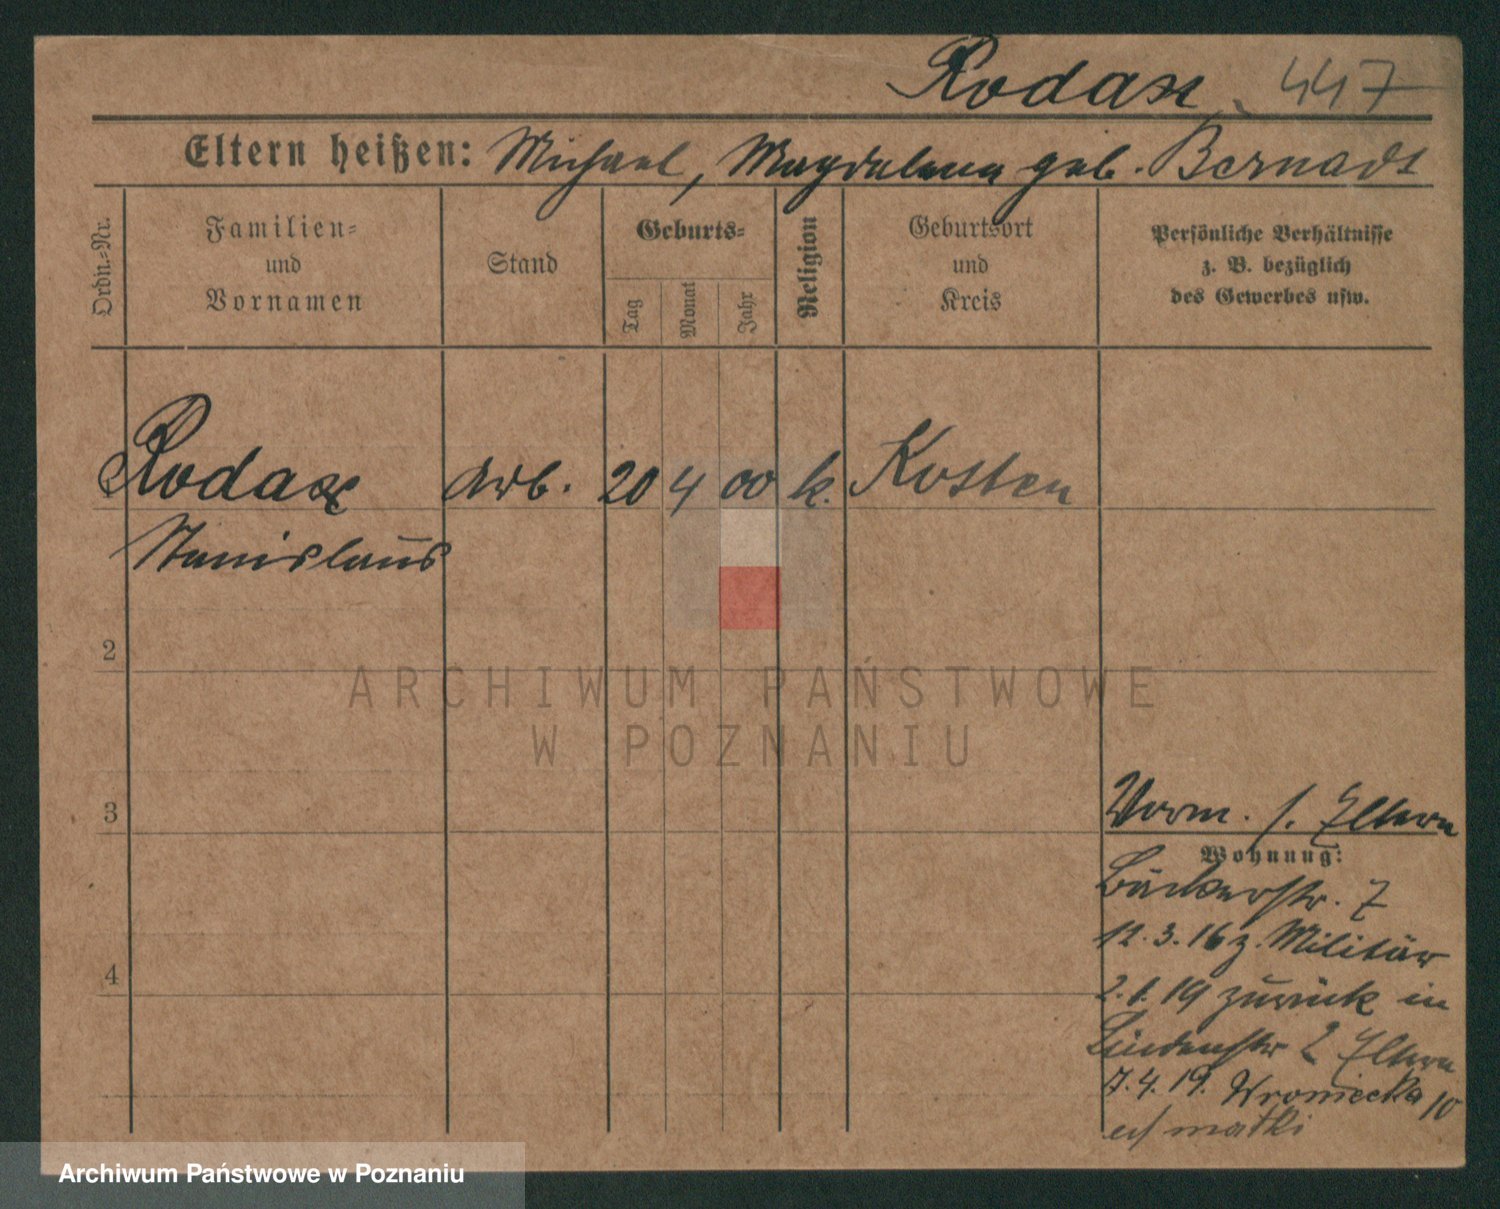 Rodax 447
Eltern heißen: Michael, Magdalena geb. Bernadt
Ordn.-Nr.
Familien-
und
Vornamen
Stand
Geburts-
Tag
Monat
Jahr
Religion
Geburtsort
und
Kreis
Persönliche Verhältnisse
z. B. bezüglich
des Gewerbes usw.
Rodax Arb. 20 4 00 k. Kosten
Stanislaus
2
ARCHIWUM PAŃSTWOWE
W POZNANIU
3
Vorm. s. Eltern
Wohnung:
Bäckerstr. 7
12.3.16 z. Militär
4
2.1.19 zurück in
Lindenstr 2 Eltern
7.4.19. Wroniecka 10
matki
Archiwum Państwowe w Poznaniu